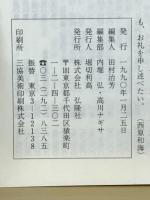 も、お礼を申し述べたい。（西原和海）
発行　一九九〇年一月二五日
編集人　田村治芳
編集部　内堀弘・高川ナギサ
発行人　堀切利高
発行所　株式会社　弘隆社
〒東京都千代田区猿楽町
一―二―四―三〇二
☎〇三（二九二）八三八五
振替　東京3―12138
印刷所　三協美術印刷株式会社